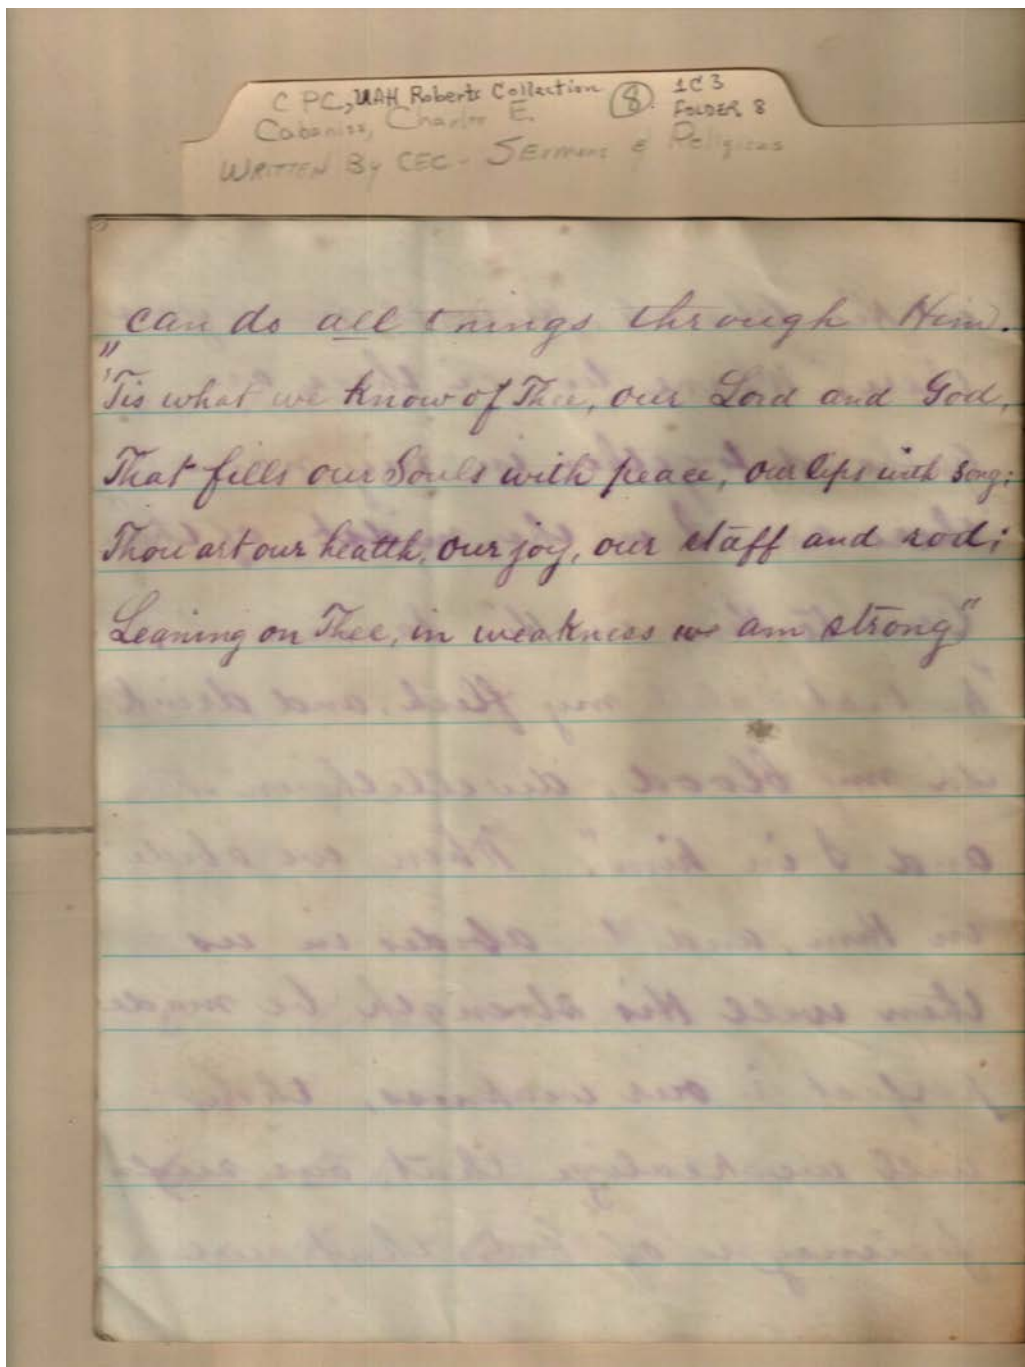 C PC, UAH Roberts Collection (8) 1C3
Cabaniss, Charles E. FOLDER 8
WRITTEN By CEC - SErmons & Religious
can do all things through Him.
"'Tis what we know of Thee, our Lord and God,
That fills our Souls with peace, our lips with song;
Thou art our health, our joy, our staff and rod;
Leaning on Thee, in weakness we am strong"